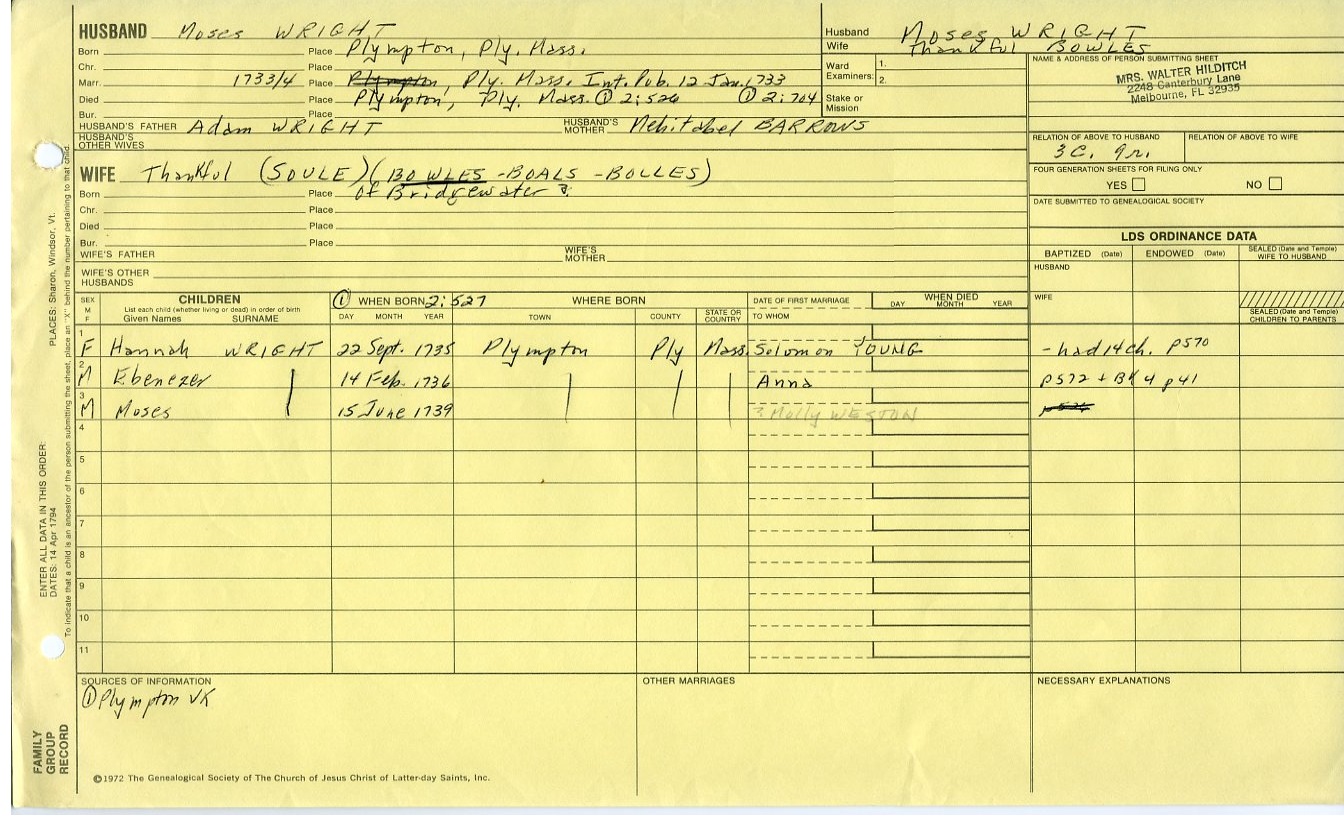 HUSBAND Moses WRIGHT
Born Place Plympton, Ply. Mass.
Chr. Place
Marr. 1733/4 Place Plympton, Ply. Mass. Int. Pub. 12 Jan. 1733
Died Place Plympton, Ply. Mass. ① 2:526 ① 2:704
Bur. Place
HUSBAND'S FATHER Adam WRIGHT HUSBAND'S MOTHER Mehitabel BARROWS
HUSBAND'S OTHER WIVES
Husband Moses WRIGHT
Wife Thankful BOWLES
Ward Examiners: 1.
2.
Stake or Mission
NAME & ADDRESS OF PERSON SUBMITTING SHEET
MRS. WALTER HILDITCH
2248 Canterbury Lane
Melbourne, FL 32935
RELATION OF ABOVE TO HUSBAND RELATION OF ABOVE TO WIFE
3C. 9r.
FOUR GENERATION SHEETS FOR FILING ONLY
YES NO
DATE SUBMITTED TO GENEALOGICAL SOCIETY
WIFE Thankful (SOULE) (BOWLES -BOALS -BOLLES)
Born Place of Bridgewater ?
Chr. Place
Died Place
Bur. Place
WIFE'S FATHER WIFE'S MOTHER
WIFE'S OTHER HUSBANDS
LDS ORDINANCE DATA
BAPTIZED (Date) ENDOWED (Date) SEALED (Date and Temple) WIFE TO HUSBAND
HUSBAND
WIFE
SEALED (Date and Temple) CHILDREN TO PARENTS
SEX M F
CHILDREN
List each child (whether living or dead) in order of birth
Given Names SURNAME
① WHEN BORN 2:527
DAY MONTH YEAR
WHERE BORN
TOWN COUNTY STATE OR COUNTRY
DATE OF FIRST MARRIAGE
TO WHOM
WHEN DIED
DAY MONTH YEAR
1 F Hannah WRIGHT 22 Sept. 1735 Plympton Ply Mass. Solomon YOUNG - had 14 ch. p570
2 M Ebenezer 14 Feb. 1736 Anna p572 + BK 4 p41
3 M Moses 15 June 1739 ? Molly WESTON
4
5
6
7
8
9
10
11
SOURCES OF INFORMATION
① Plympton VR
OTHER MARRIAGES
NECESSARY EXPLANATIONS
©1972 The Genealogical Society of The Church of Jesus Christ of Latter-day Saints, Inc.
FAMILY GROUP RECORD
ENTER ALL DATA IN THIS ORDER:
DATES: 14 Apr 1794 PLACES: Sharon, Windsor, Vt.
To indicate that a child is an ancestor of the person submitting the sheet, place an "X" behind the number pertaining to that child.